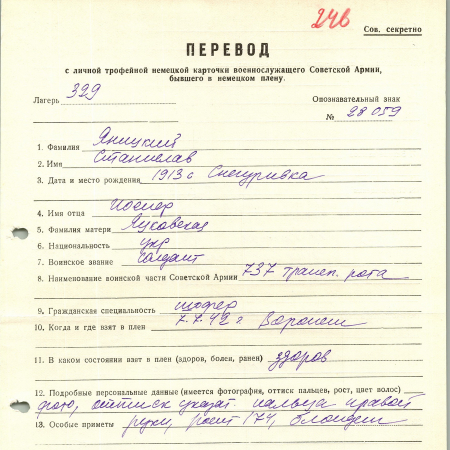 24в
Сов. секретно
ПЕРЕВОД
с личной трофейной немецкой карточки военнослужащего Советской Армии,
бывшего в немецком плену.
Лагерь 329
Опознавательный знак
№ 28059
1. Фамилия Яницкий
2. Имя Станислав
3. Дата и место рождения 1913 с Снегуривка
4. Имя отца Иосиф
5. Фамилия матери Яуковская
6. Национальность укр
7. Воинское звание солдат
8. Наименование воинской части Советской Армии 737 трансп. рота
9. Гражданская специальность шофер
10. Когда и где взят в плен 7.7.42 г Воронеж
11. В каком состоянии взят в плен (здоров, болен, ранен) здоров
12. Подробные персональные данные (имеется фотография, оттиск пальцев, рост, цвет волос)
фото, оттиск указат. пальца правой
13. Особые приметы руки, рост 174, блондин